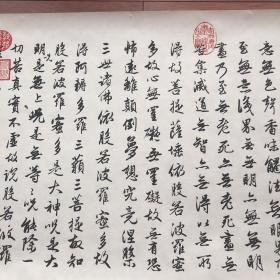 意無色聲香味觸法無
至無意識界無無明亦無無明
盡乃至無老死亦無老死盡無
苦集滅道無智亦無得以無所
得故菩提薩埵依般若波羅蜜
多故心無罣礙無罣礙故無有恐
怖遠離顛倒夢想究竟涅槃
三世諸佛依般若波羅蜜多故
得阿耨多羅三藐三菩提故知
般若波羅蜜多是大神咒是大
明咒是無上咒是無等等咒能除一
切苦真實不虛故說般若波羅